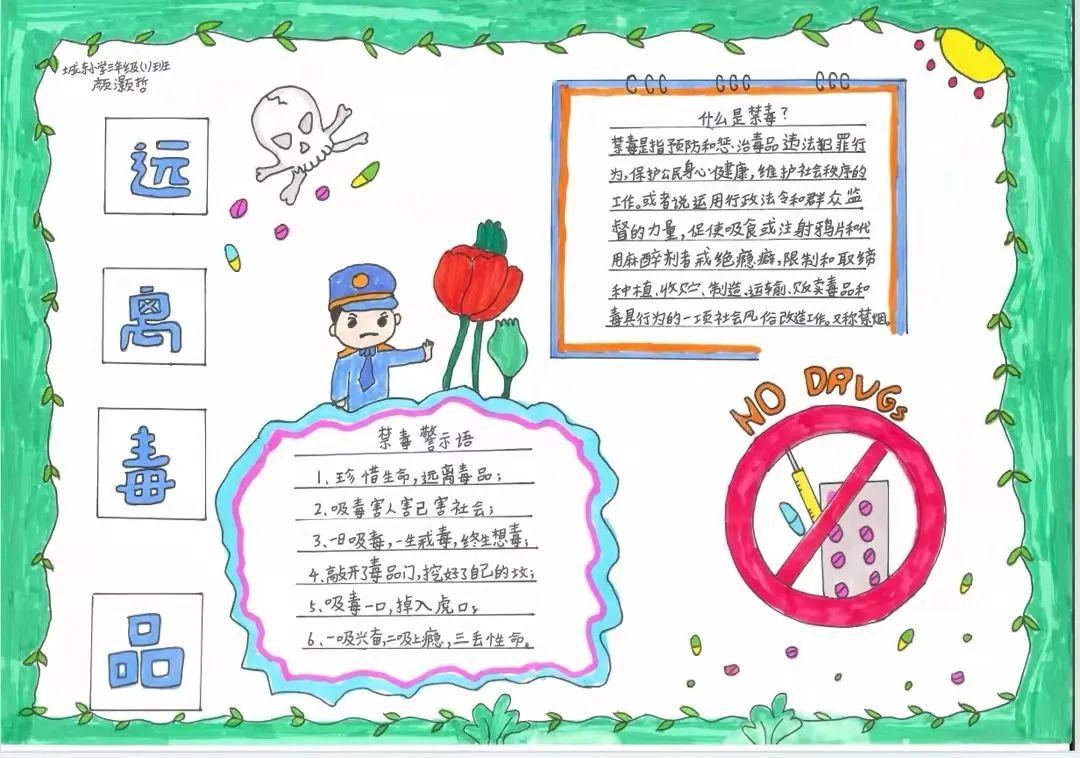 城东小学三年级(1)班
颜灏哲
远
离
毒
品
什么是禁毒?
禁毒是指预防和惩治毒品违法犯罪行
为,保护公民身心健康,维护社会秩序的
工作。或者说运用行政法令和群众监
督的力量,促使吸食或注射鸦片和代
用麻醉剂者戒绝瘾癖,限制和取缔
种植、收贮、制造、运输、贩卖毒品和
毒具行为的一项社会风俗改造工作。又称禁烟。
禁毒警示语
1、珍惜生命,远离毒品;
2、吸毒害人害己害社会;
3、一日吸毒,一生戒毒,终生想毒;
4、敲开了毒品门,挖好了自己的坟;
5、吸毒一口,掉入虎口;
6、一吸兴奋,二吸上瘾,三丢性命。
NO DRUGs